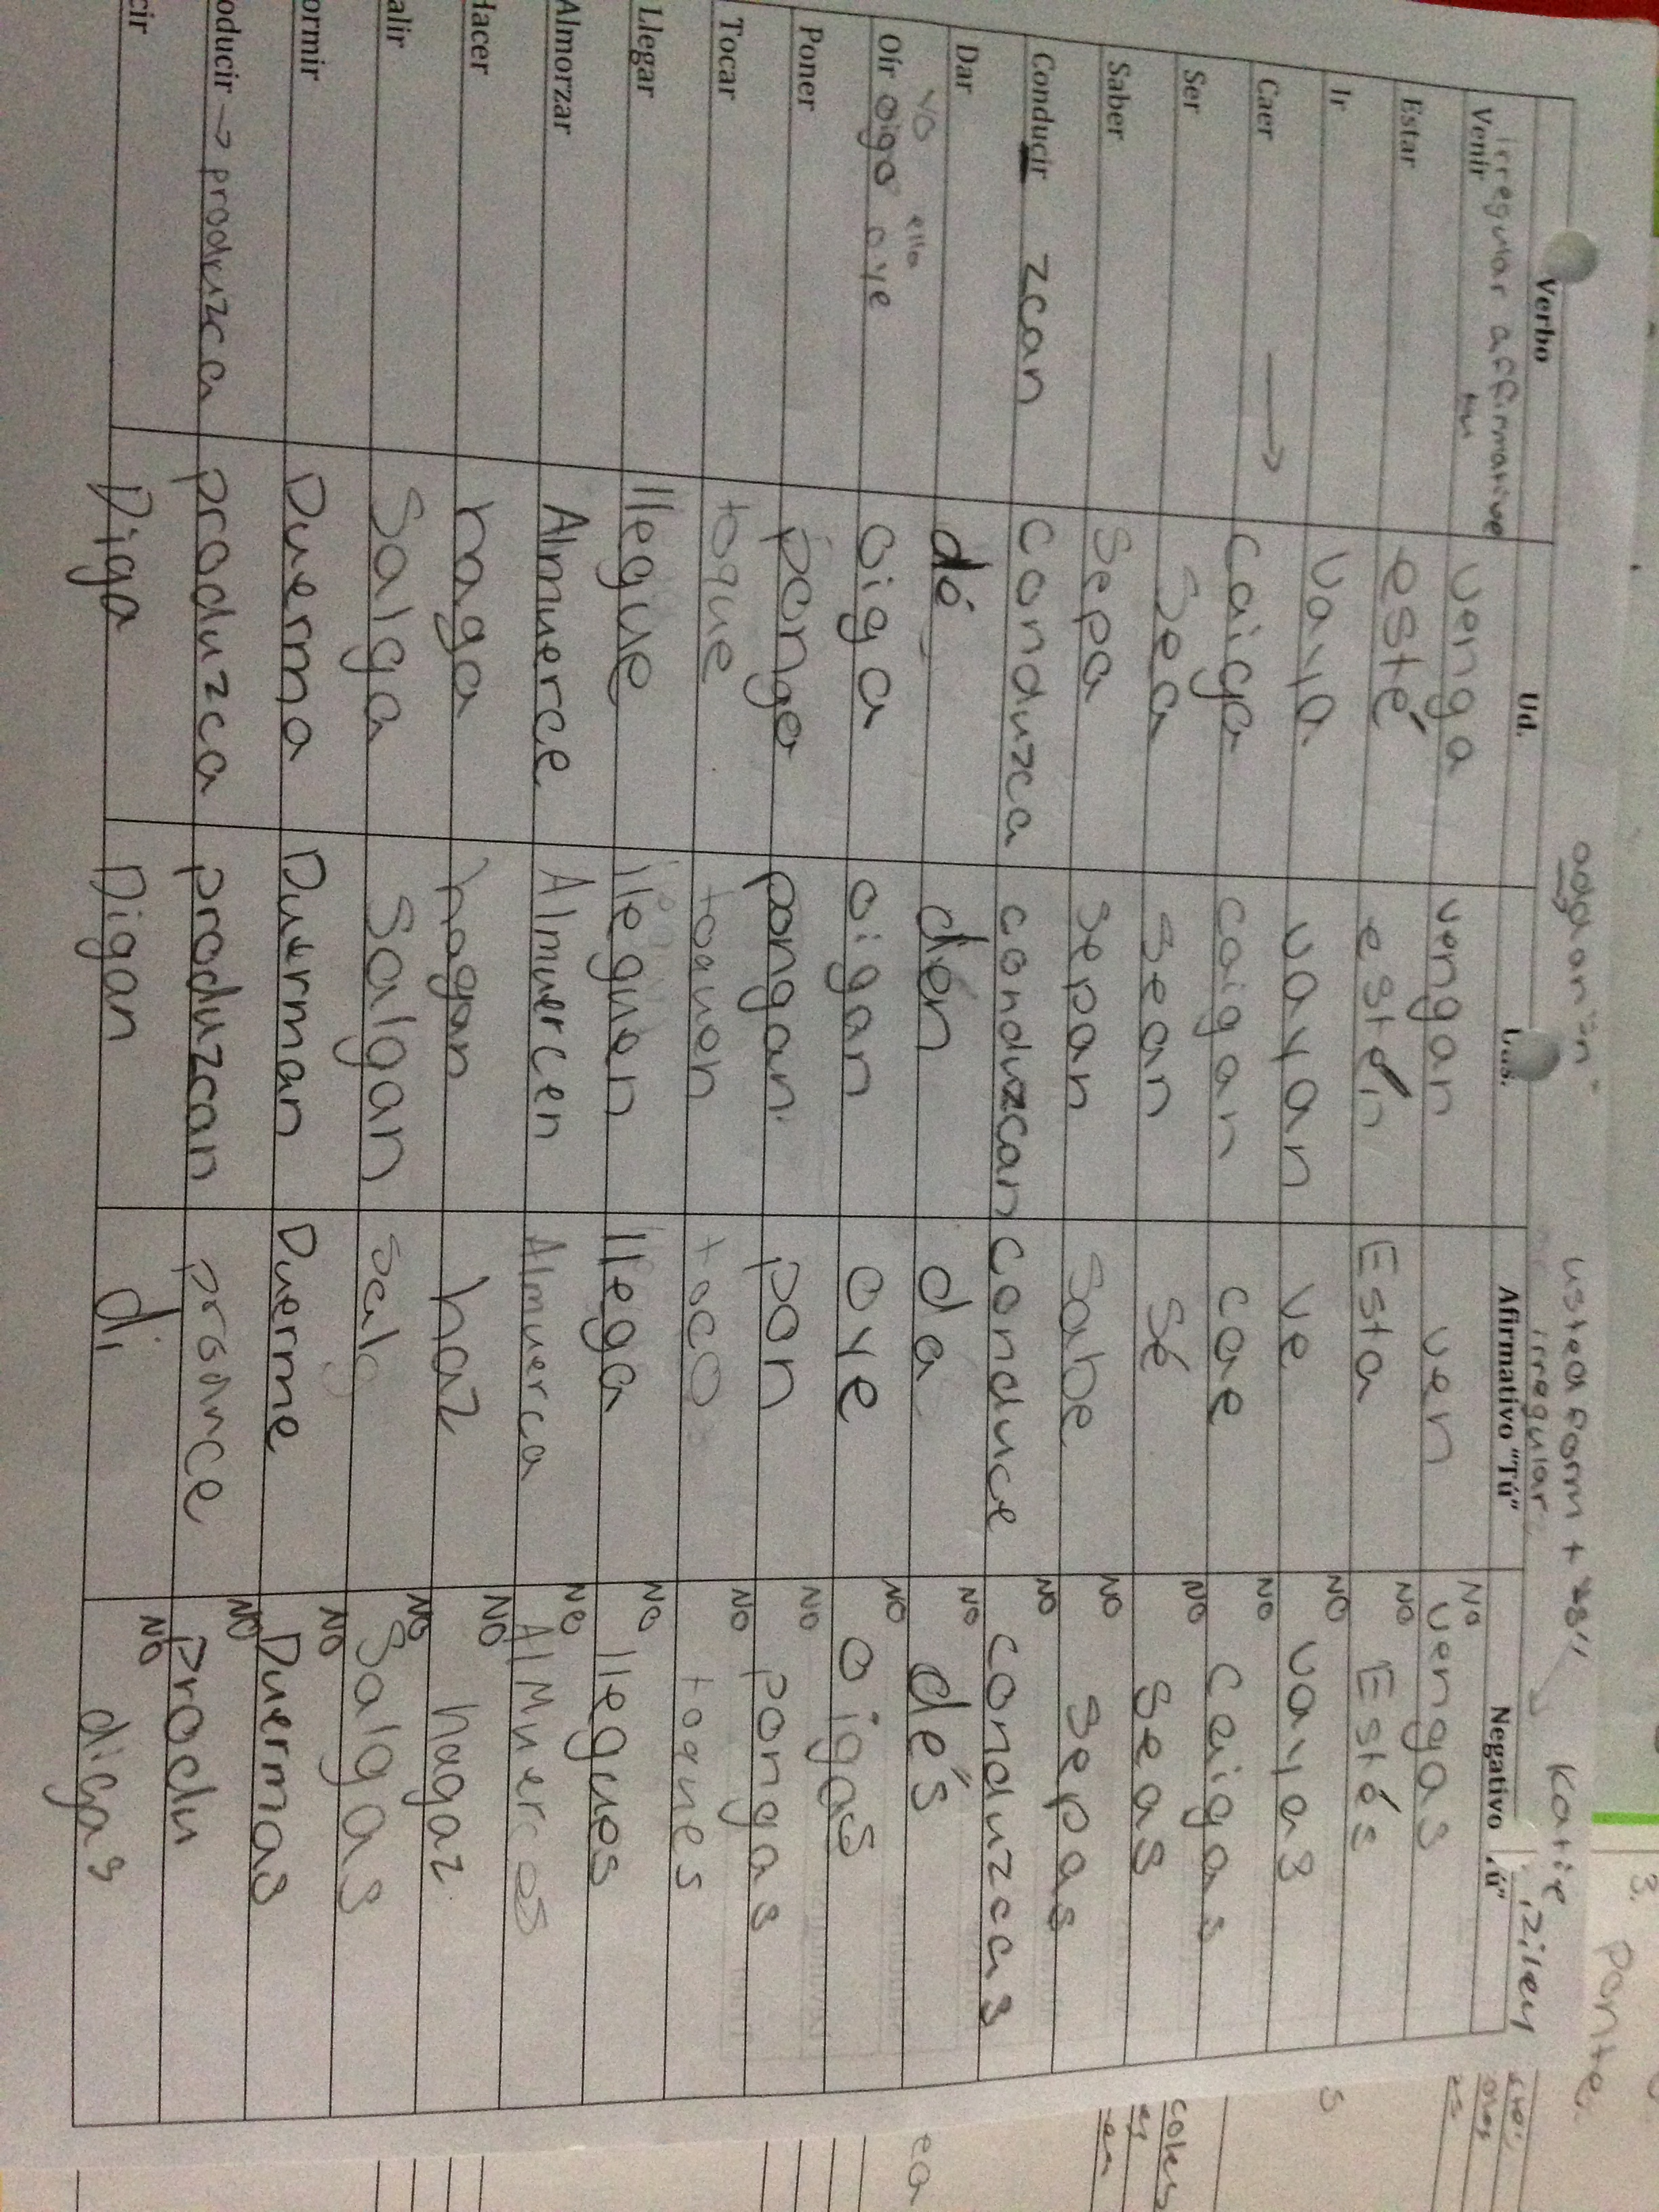 add an "n" usted form + "s" Katie
irregular
Verbo Ud. Afirmativo "Tú" Negativo
irregular affirmative tu
Venir venga vengan ven No vengas
Estar esté estén Esta No Estés
Ir vaya vayan ve No vayas
Caer → Caiga caigan cae No Caigas
Ser Sea sean sé No Seas
Saber Sepa sepan Sabe No sepas
Conducir zcan conduzca conduzcan conduce No conduzcas
Dar dé den da No dés
yo ella
Oír oigo oye oiga oigan oye No oigas
Poner ponga pongan pon No pongas
Tocar toque toquen toca No toques
Llegar llegue lleguen llega No llegues
Almorzar Almuerce Almuercen Almuerca No Almuerces
Hacer haga hagan haz No hagaz
alir Salga Salgan sal No Salgas
ormir Duerma Duerman Duerme No Duermas
oducir → produzca produzca produzcan No Produ
cir Diga Digan di No digas
3. ponte